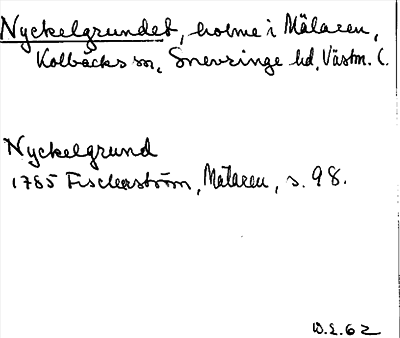 Nyckelgrundet, holme i Mälaren,
Kolbäcks sn, Snevringe hd, Västm. l.
Nyckelgrund
1785 Fischerström, Mälaren, s. 98.
W.E. 62